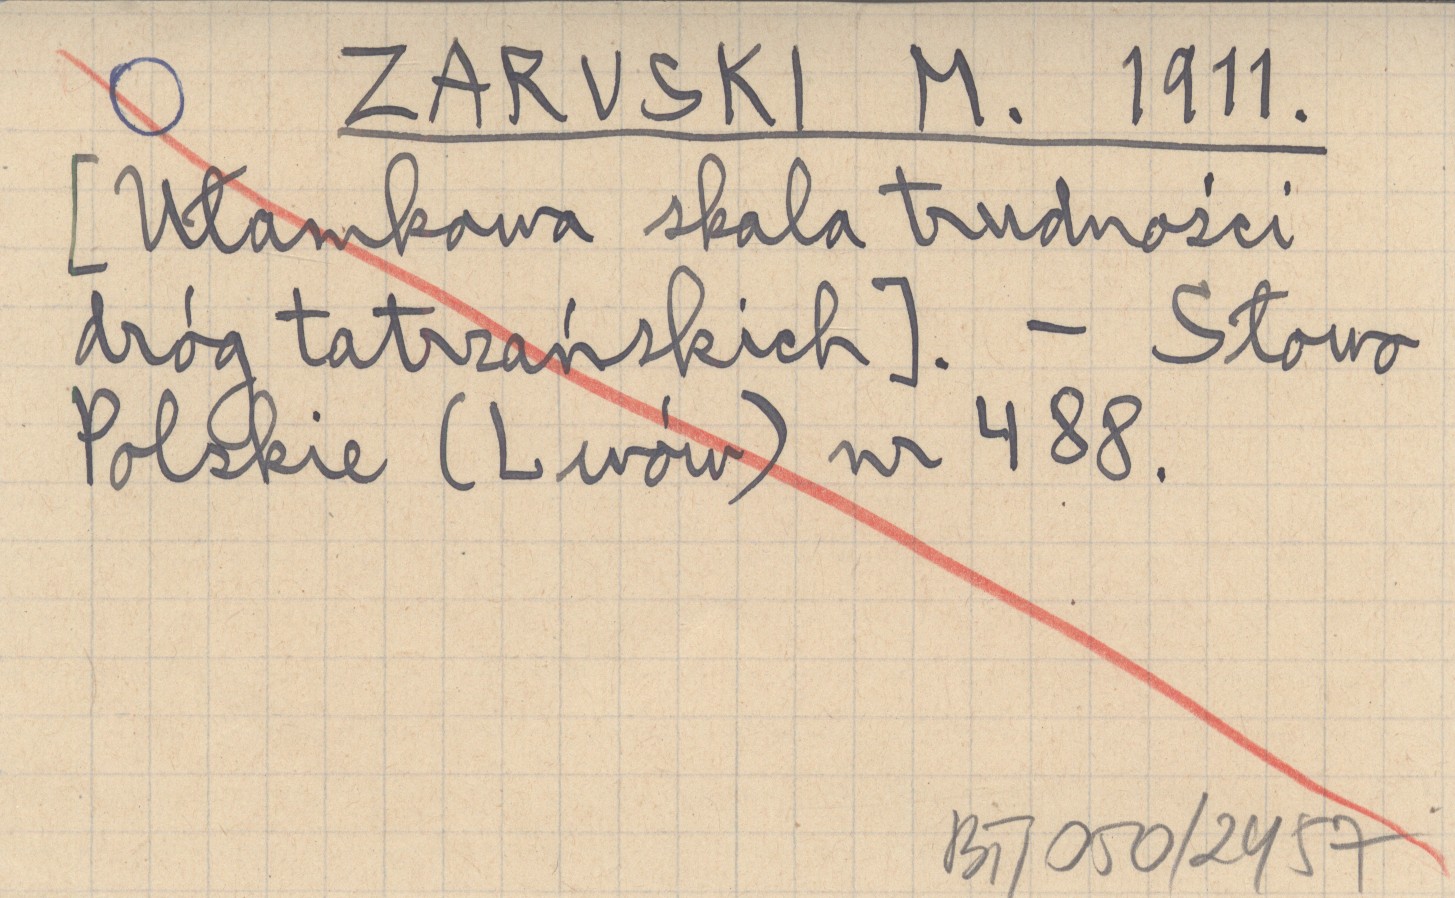 ZARUSKI M. 1911.
[Ułamkowa skala trudności
dróg tatrzańskich]. – Słowo
Polskie (Lwów) nr 488.
BT/050/2457